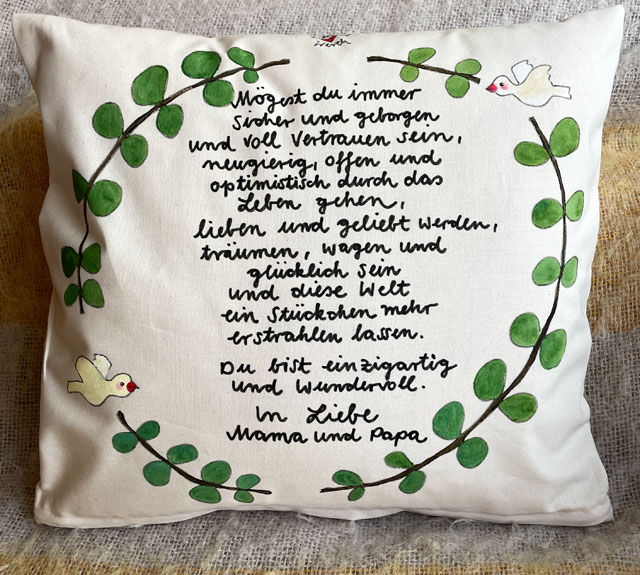 Mögest du immer
sicher und geborgen
und voll Vertrauen sein,
neugierig, offen und
optimistisch durch das
Leben gehen,
lieben und geliebt werden,
träumen, wagen und
glücklich sein
und diese Welt
ein Stückchen mehr
erstrahlen lassen.
Du bist einzigartig
und wundervoll.
In Liebe
Mama und Papa